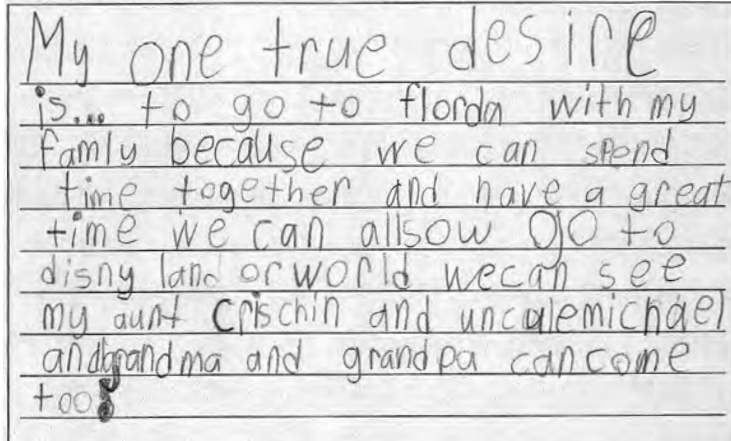 My one true desire
is... to go to florda with my
famly because we can spend
time together and have a great
time we can allsow go to
disny land or world wecan see
my aunt Crischin and uncalemichael
andgrandma and grandpa cancome
too!